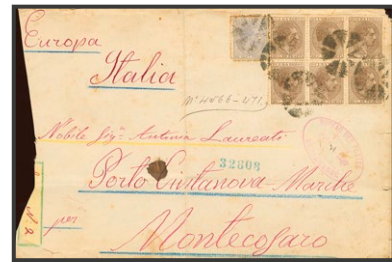 Europa
Italia
Nobile Sigr. Antonio Laureati
32808
Porto Civitanova-Marche
per
Montecosaro